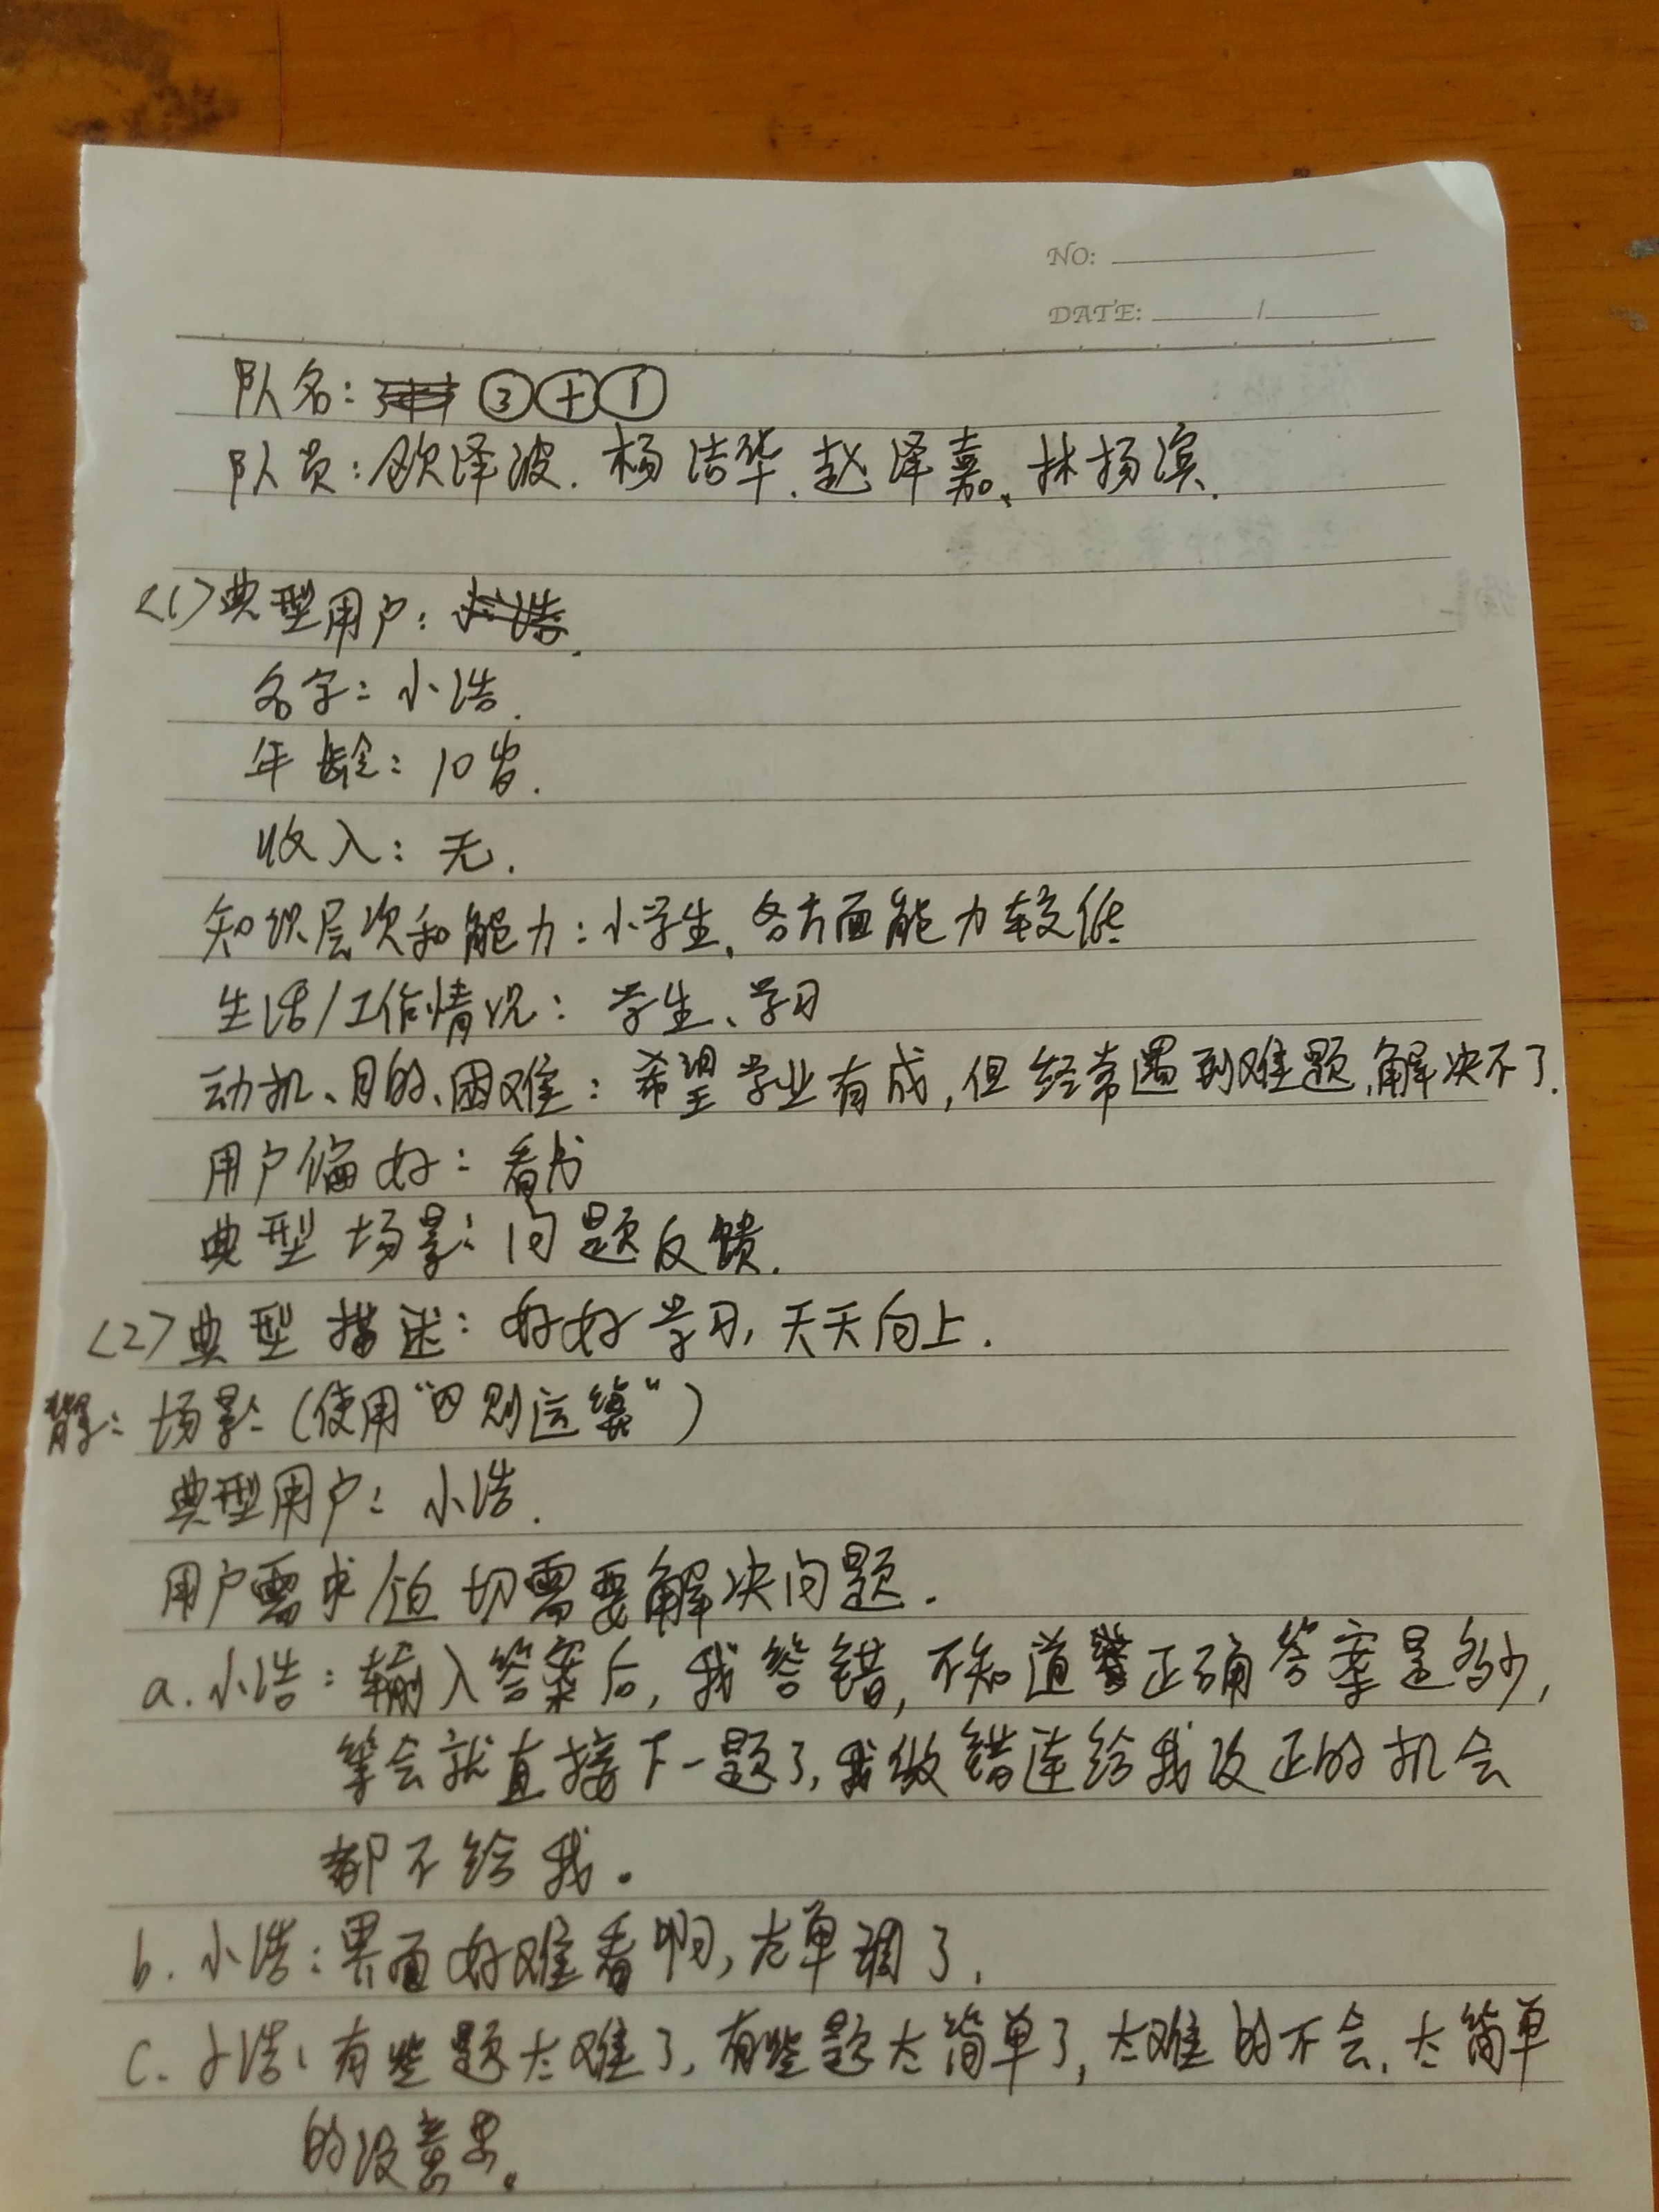 NO:
DATE: /
队名: ③ ⊕ ①
队员: 欧泽波. 杨洁华. 赵泽嘉、林扬滨.
<1>典型用户:
名字: 小浩.
年龄: 10岁.
收入: 无.
知识层次和能力: 小学生, 各方面能力较低
生活/工作情况: 学生、学习
动机、目的、困难: 希望学业有成, 但经常遇到难题, 解决不了.
用户偏好: 看书
典型场景: 问题反馈.
<2>典型描述: 好好学习, 天天向上.
背景: 场景: (使用“四则运算”)
典型用户: 小浩.
用户需求/迫切需要解决问题.
a. 小浩: 输入答案后, 我答错, 不知道正确答案是多少,
等会就直接下一题了, 我做错连给我改正的机会
都不给我.
b. 小浩: 界面好难看啊, 太单调了.
c. 小浩: 有些题太难了, 有些题太简单了, 太难的不会, 太简单
的没意思。